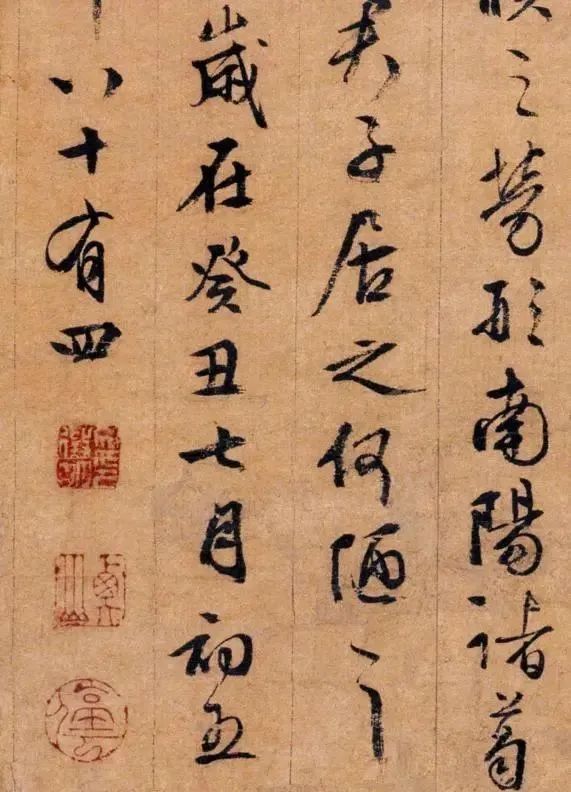 之勞形南陽諸葛
夫子居之何陋之
歲在癸丑七月初五
八十有四
衡山
停雲